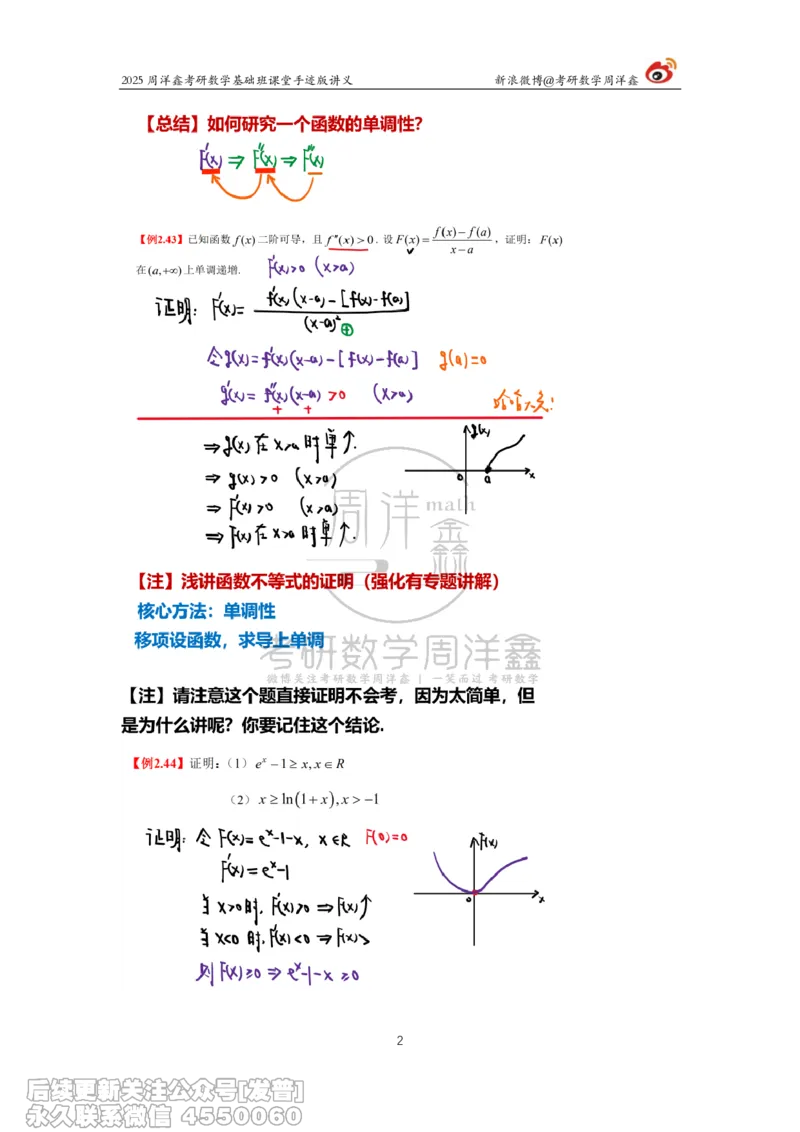 2025 周洋鑫考研数学基础班课堂手迹版讲义 新浪微博@考研数学周洋鑫
【总结】如何研究一个函数的单调性?
F'(x) ⇒ F''(x) ⇒ F'''(x)
【例2.43】已知函数 f(x) 二阶可导，且 f''(x)>0. 设 F(x)=\frac{f(x)-f(a)}{x-a}，证明：F(x)
在(a,+∞)上单调递增. F'(x)>0 (x>a)
证明: F'(x)=\frac{f'(x)(x-a)-[f(x)-f(a)]}{(x-a)²} ⊕
令g(x)=f'(x)(x-a)-[f(x)-f(a)] g(a)=0
g'(x)=f''(x)(x-a)>0 (x>a)
+ +
⇒g(x)在x>a时单↑. g(x)
⇒ g(x)>0 (x>a) 0 a x
⇒ F'(x)>0 (x>a)
⇒ F(x)在x>a时单↑.
周洋鑫 math
【注】浅讲函数不等式的证明（强化有专题讲解）
核心方法：单调性
移项设函数，求导上单调
考研数学周洋鑫
微博关注考研数学周洋鑫 | 一笑而过 考研数学
【注】请注意这个题直接证明不会考，因为太简单，但
是为什么讲呢？你要记住这个结论.
【例2.44】证明：（1）e^x-1≥x, x∈R
（2）x≥ln(1+x), x>-1
证明: 令F(x)=e^x-1-x, x∈R F(0)=0 F(x)
F'(x)=e^x-1
当x>0时, F'(x)>0 ⇒F(x)↑ 0 x
当x<0时, F'(x)<0 ⇒F(x)↘
则F(x)≥0 ⇒ e^x-1-x≥0
2
后续更新关注公众号[发普]
永久联系微信 4550060